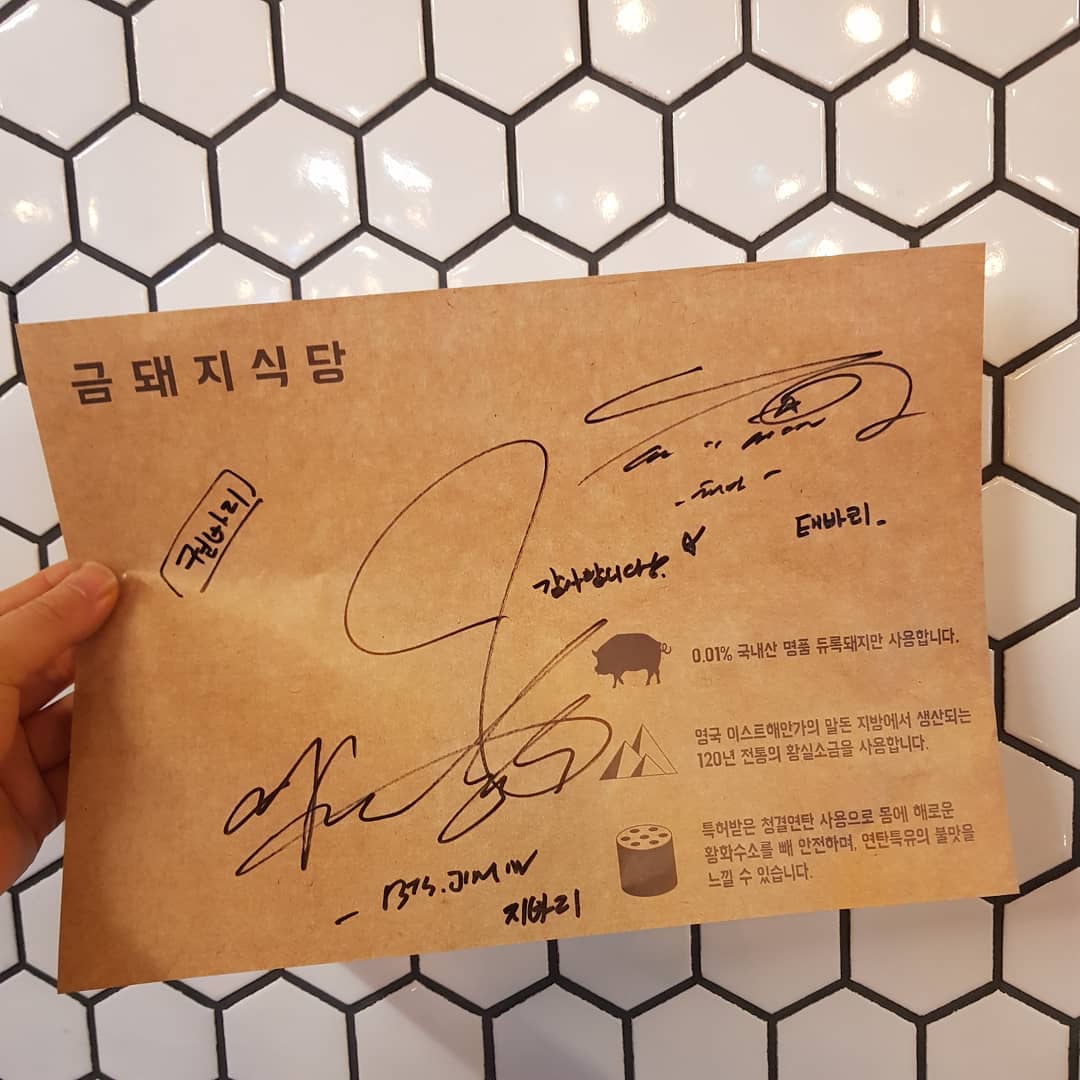 금돼지식당
권바리
-태민-
태바리-
감사합니다!
0.01% 국내산 명품 듀록돼지만 사용합니다.
영국 이스트해안가의 말돈 지방에서 생산되는
120년 전통의 황실소금을 사용합니다.
특허받은 청결연탄 사용으로 몸에 해로운
황화수소를 빼 안전하며, 연탄특유의 불맛을
느낄 수 있습니다.
- BTS. JIMIN
지바리